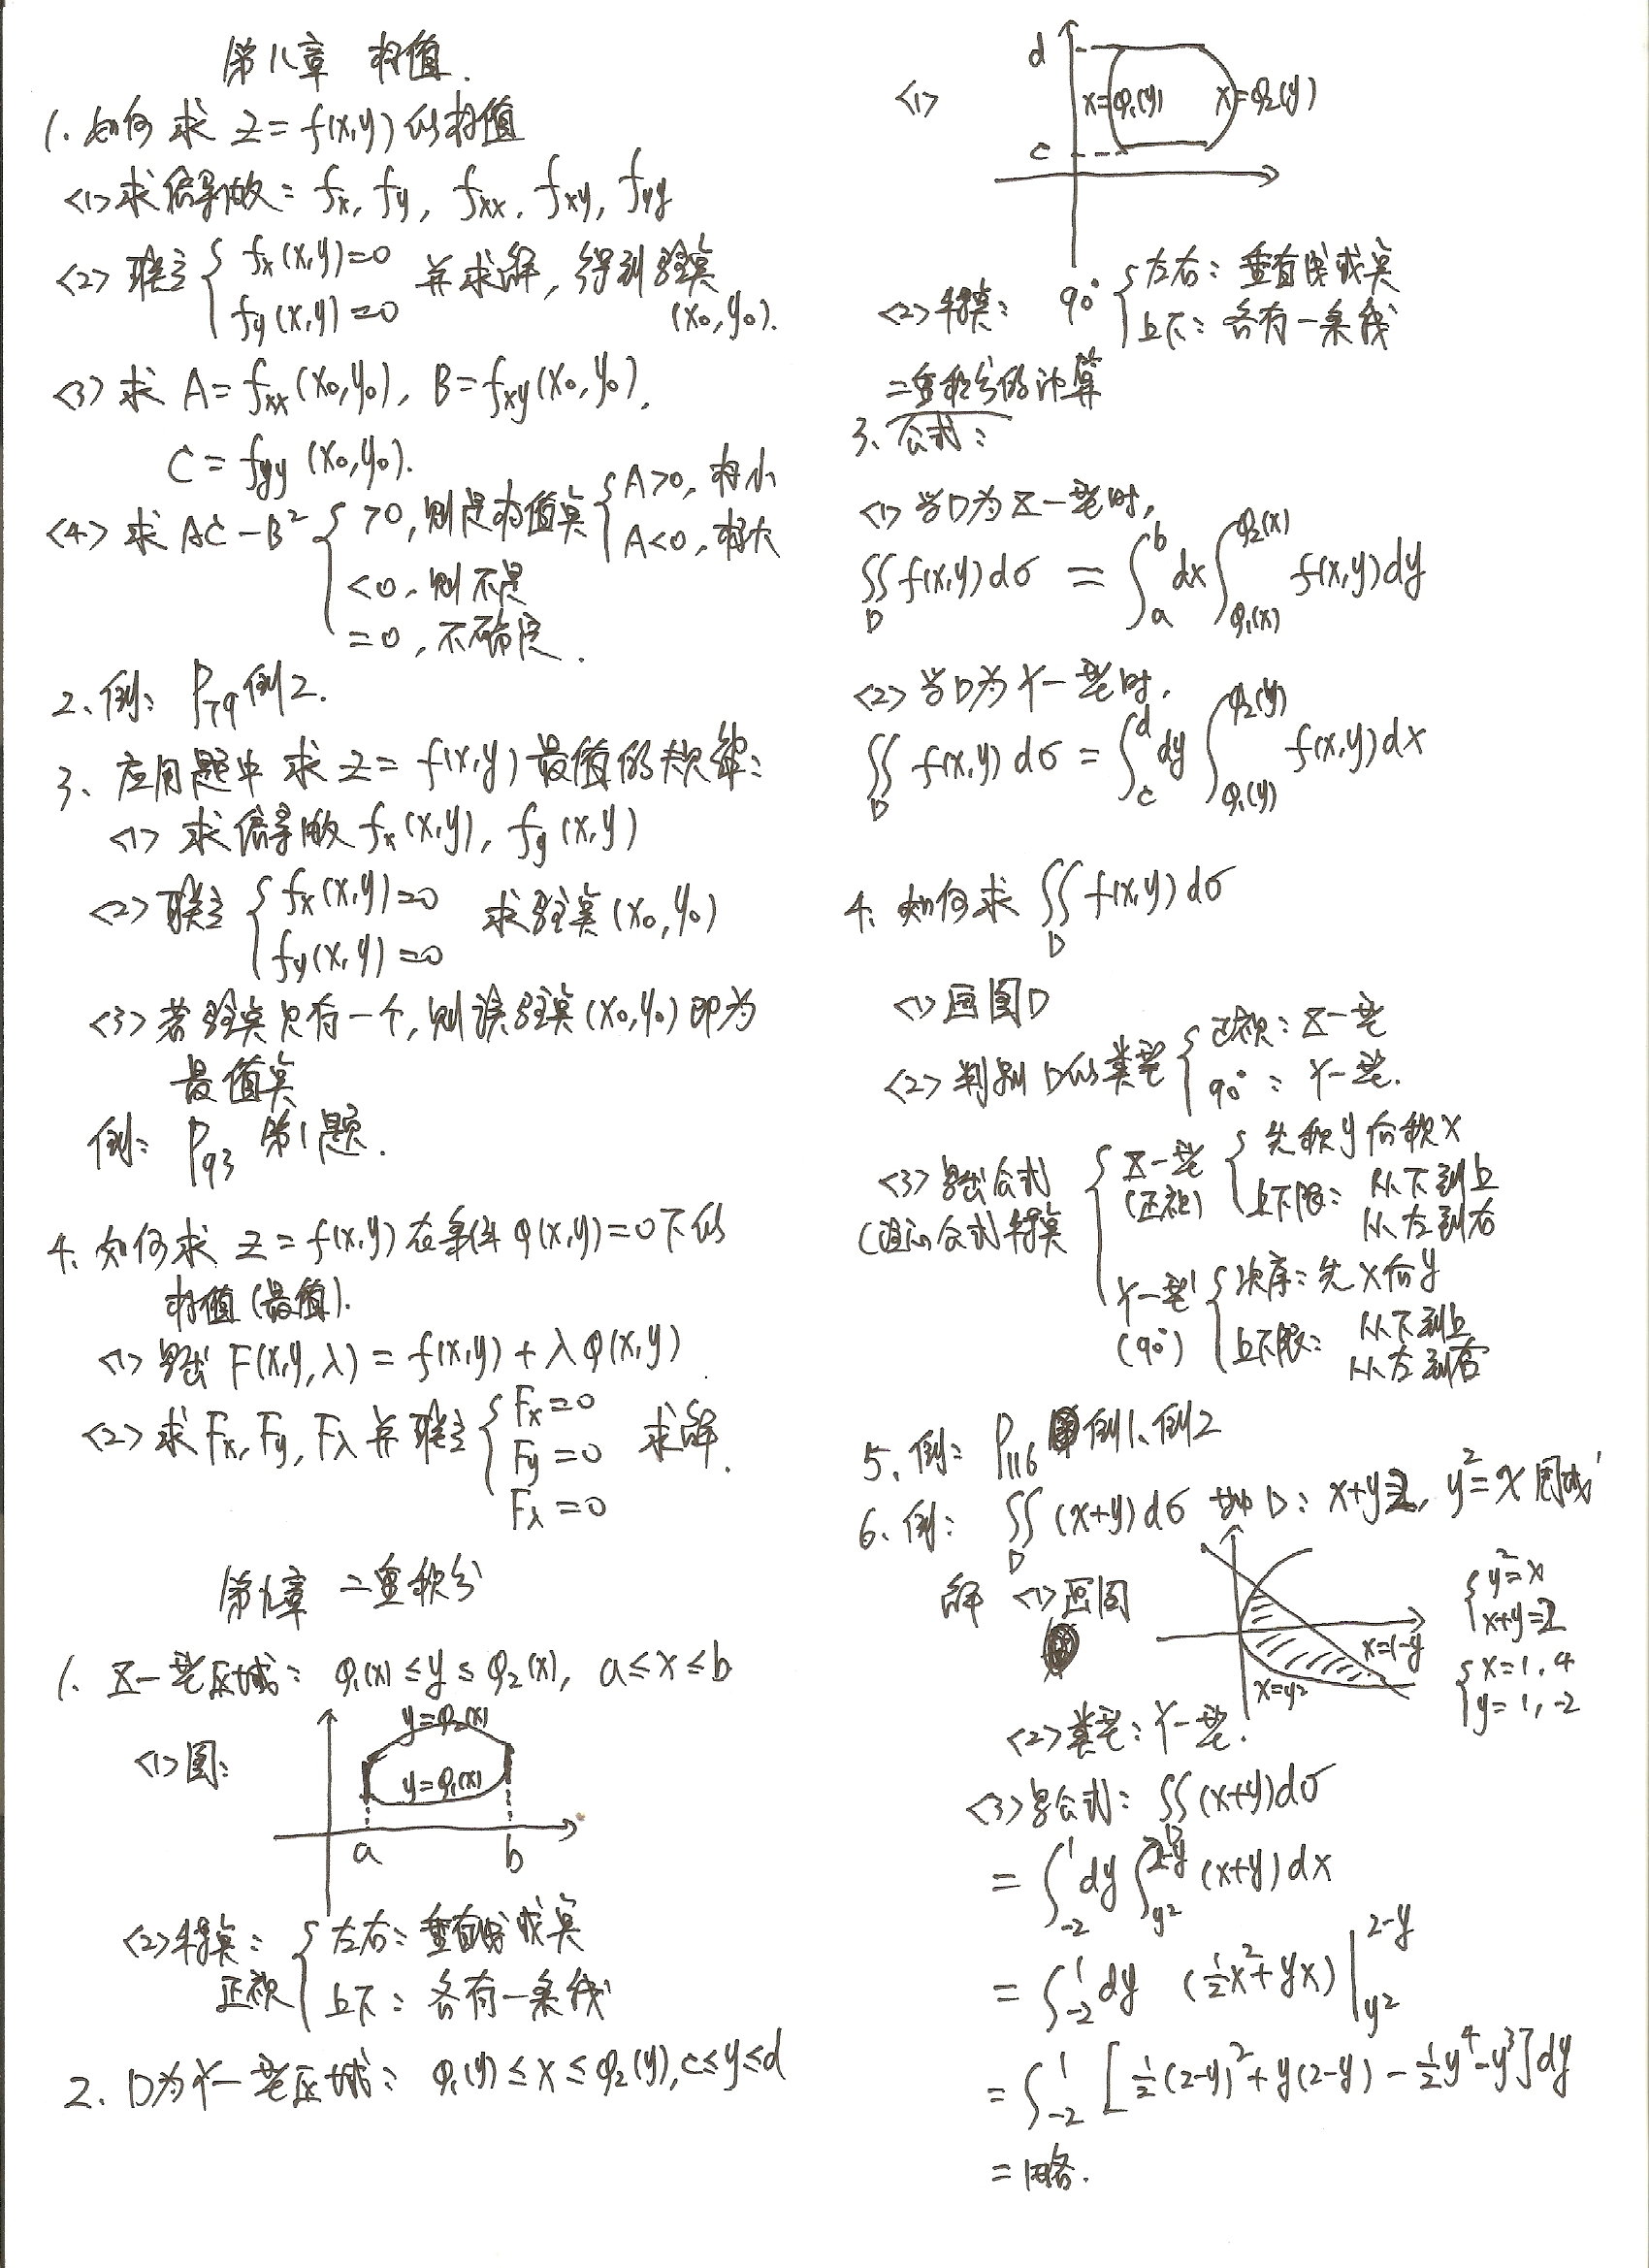 第八章 极值.
1. 如何求 z=f(x,y)的极值
<1> 求偏导数: fx, fy, fxx, fxy, fyy
<2> 联立 { fx(x,y)=0 并求解, 得到驻点
fy(x,y)=0 (x0,y0).
<3> 求 A=fxx(x0,y0), B=fxy(x0,y0),
C=fyy(x0,y0).
<4> 求 AC-B² { >0, 则是极值点 { A>0, 极小
A<0, 极大
<0, 则不是
=0, 不确定.
2、例: P79 例2.
3、应用题中求 z=f(x,y)最值的步骤:
<1> 求偏导数 fx(x,y), fy(x,y)
<2> 联立 { fx(x,y)=0 求驻点(x0,y0)
fy(x,y)=0
<3> 若驻点只有一个, 则该驻点(x0,y0)即为
最值点
例: P93 第1题.
4、如何求 z=f(x,y)在条件 φ(x,y)=0下的
极值(最值).
<1> 写出 F(x,y,λ)=f(x,y)+λφ(x,y)
<2> 求Fx, Fy, Fλ 并联立 { Fx=0 求解.
Fy=0
Fλ=0
第九章 二重积分
1. X-型区域: φ1(x)≤y≤φ2(x), a≤x≤b
<1> 图:
y=φ2(x)
y=φ1(x)
a b
<2> 特点: { 左右: 垂直线或点
正视 上下: 各有一条线
2. D为Y-型区域: φ1(y)≤x≤φ2(y), c≤y≤d
<1>
d
x=φ1(y) x=φ2(y)
c
<2> 特点: 90° { 左右: 垂直线或点
上下: 各有一条线
二重积分的计算
3、公式:
<1> 当D为X-型时,
∬D f(x,y)dσ = ∫ab dx ∫φ1(x)φ2(x) f(x,y)dy
<2> 当D为Y-型时,
∬D f(x,y)dσ = ∫cd dy ∫φ1(y)φ2(y) f(x,y)dx
4、如何求 ∬D f(x,y)dσ
<1> 画图D
<2> 判别D的类型 { 正视: X-型
90°: Y-型.
<3> 写出公式 { X-型 { 先积y后积x
(正视) 上下限: 从下到上
从左到右
公式特点
Y-型 { 次序: 先x后y
(90°) 上下限: 从下到上
从左到右
5、例: P116 例1、例2
6、例: ∬D (x+y)dσ 其中D: x+y=2, y²=x 围成
解 <1> 画图
x=1-y
x=y²
{ y²=x
x+y=2
{ x=1, 4
y=1, -2
<2> 类型: Y-型.
<3> 写公式: ∬D (x+y)dσ
=∫-2 1 dy ∫y² 2-y (x+y)dx
=∫-2 1 dy (½x²+yx)|y² 2-y
=∫-2 1 [½(2-y)²+y(2-y)-½y⁴-y³]dy
=略.